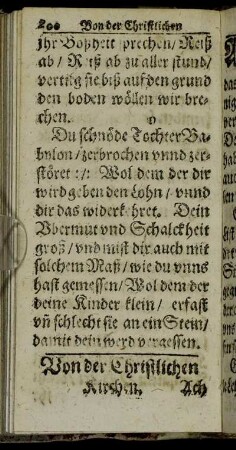 200 Von der Christlichen
jhr Boßheit sprechen/Reiß
ab/ Reiß ab zu aller stund/
vertilg sie biß auff den grund
den boden wöllen wir bre-
chen.
Du schnöde Tochter Ba-
bylon/zerbrochen vnnd zer-
störet :/: Wol dem der dir
wird geben den Lohn/vnnd
dir das widerkehret. Dein
Vbermut vnd Schalckheit
groß/vnd mist dir auch mit
solchem Maß/wie du vnns
hast gemessen/Wol dem der
deine Kinder klein/ erfast
vñ schlecht sie an ein Stein/
damit dein werd vergessen.
Von der Christlichen
Kirchen. Ach